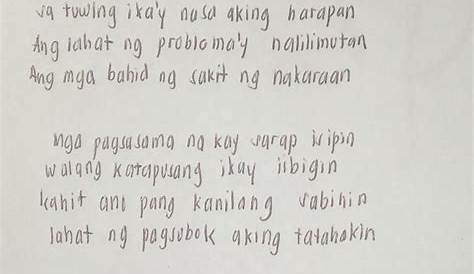 sa tuwing ika'y nasa aking harapan
Ang lahat ng problema'y nalilimutan
Ang mga bahid ng sakit ng nakaraan
mga pagsasama na kay sarap isipin
walang katapusang ikay iibigin
kahit ano pang kanilang sabihin
lahat ng pagsubok aking tatahakin